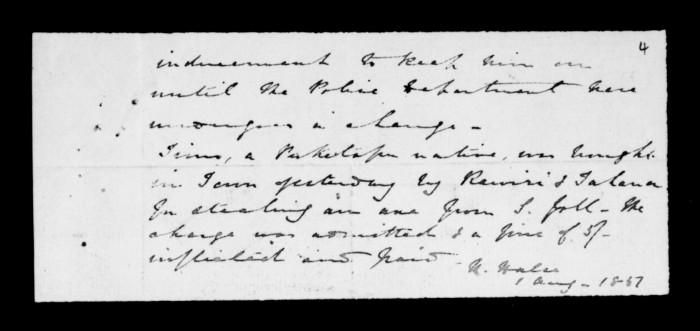 4
inducement to keep him on
until the Police Department here
undergoes a change -
, a Puketapu native, was brought
in Town yesterday by Rawiri &
for stealing an axe from S. - The
charge was admitted & a fine of 5/-
inflicted and paid
H. Halse
1 Aug - 1857